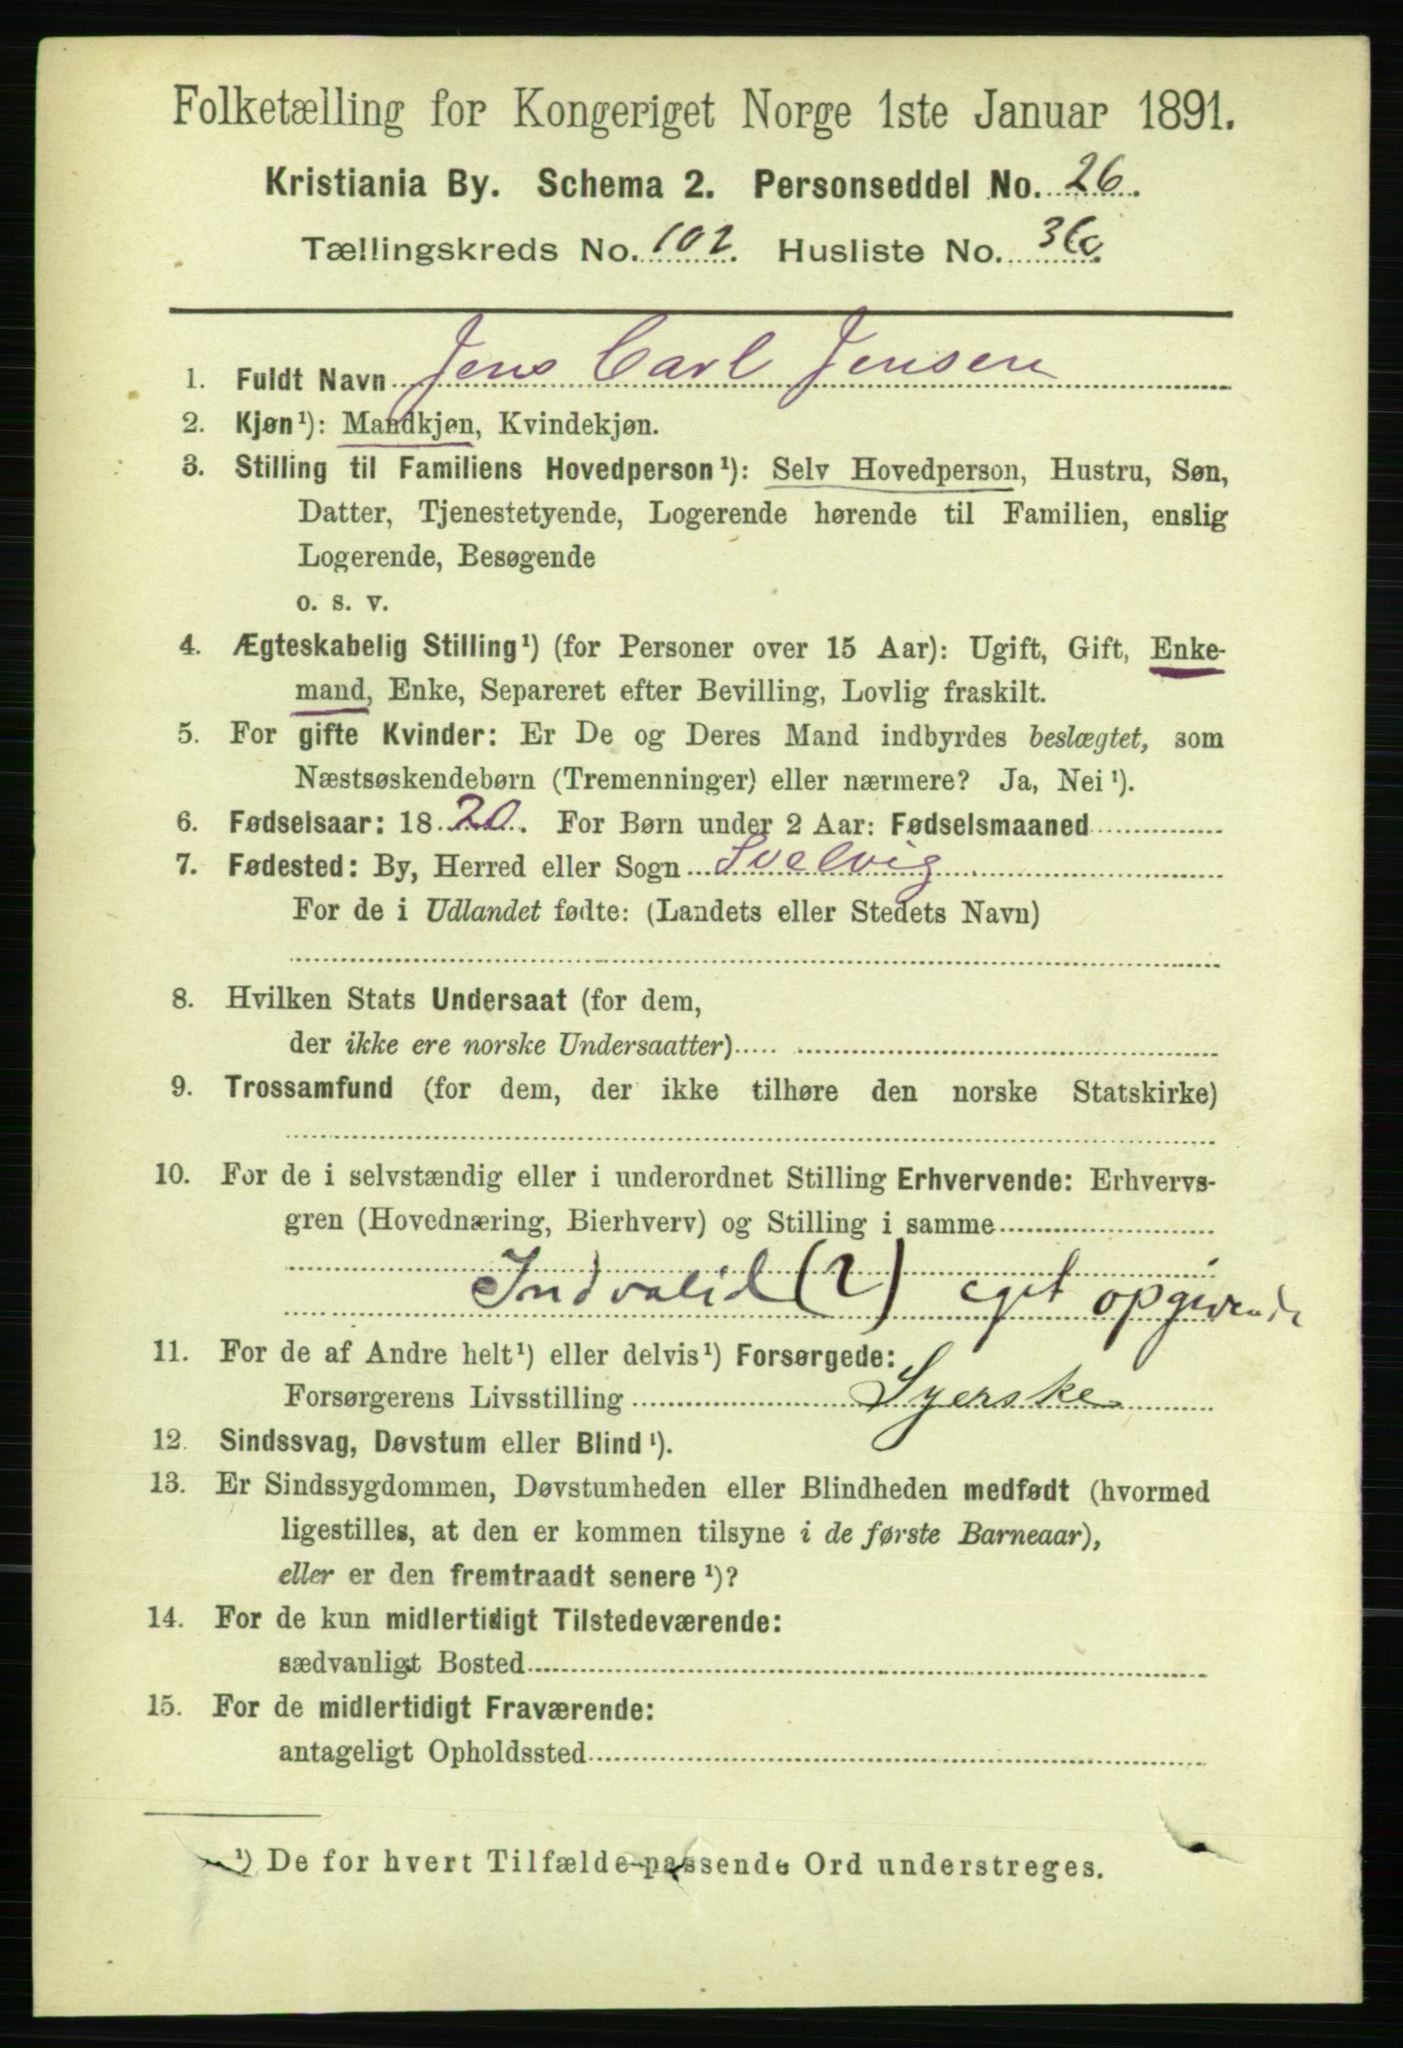 Folketælling for Kongeriget Norge 1ste Januar 1891.
Kristiania By. Schema 2. Personseddel No. 26.
Tællingskreds No. 102. Husliste No. 36
1. Fuldt Navn Jens Carl Jensen
2. Kjøn¹): Mandkjøn, Kvindekjøn.
3. Stilling til Familiens Hovedperson¹): Selv Hovedperson, Hustru, Søn,
Datter, Tjenestetyende, Logerende hørende til Familien, enslig
Logerende, Besøgende
o. s. v.
4. Ægteskabelig Stilling¹) (for Personer over 15 Aar): Ugift, Gift, Enke-
mand, Enke, Separeret efter Bevilling, Lovlig fraskilt.
5. For gifte Kvinder: Er De og Deres Mand indbyrdes beslægtet, som
Næstsøskendebørn (Tremenninger) eller nærmere? Ja, Nei¹).
6. Fødselsaar: 1820. For Børn under 2 Aar: Fødselsmaaned
7. Fødested: By, Herred eller Sogn Svelvig
For de i Udlandet fødte: (Landets eller Stedets Navn)
8. Hvilken Stats Undersaat (for dem,
der ikke ere norske Undersaatter)
9. Trossamfund (for dem, der ikke tilhøre den norske Statskirke)
10. For de i selvstændig eller i underordnet Stilling Erhvervende: Erhvervs-
gren (Hovednæring, Bierhverv) og Stilling i samme
Indvalid (2) eget opgivende
11. For de af Andre helt¹) eller delvis¹) Forsørgede:
Forsørgerens Livsstilling Syerske
12. Sindssvag, Døvstum eller Blind¹).
13. Er Sindssygdommen, Døvstumheden eller Blindheden medfødt (hvormed
ligestilles, at den er kommen tilsyne i de første Barneaar),
eller er den fremtraadt senere¹)?
14. For de kun midlertidigt Tilstedeværende:
sædvanligt Bosted
15. For de midlertidigt Fraværende:
antageligt Opholdssted
¹) De for hvert Tilfælde passende Ord understreges.